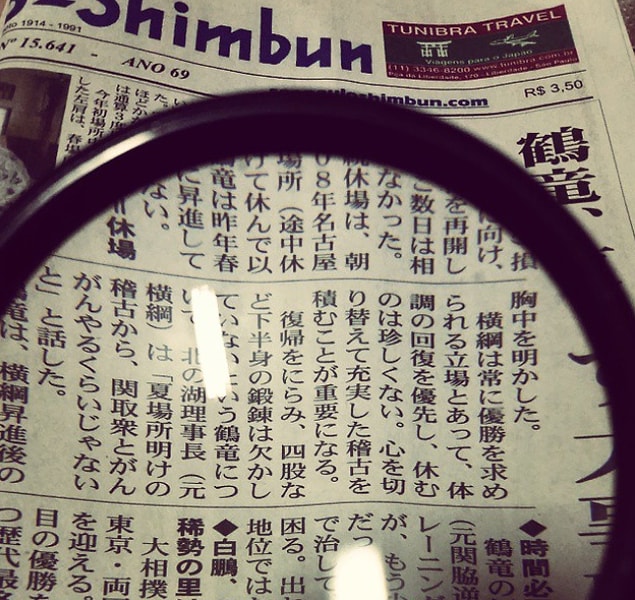 -Shimbun
1914 - 1991
Nº 15.641 - ANO 69
TUNIBRA TRAVEL
Viagens para o Japão
(11) 3346-8200 www.tunibra.com.br
Pça da Liberdade, 170 - Liberdade - São Paulo
shimbun.com
R$ 3,50
鶴竜、
損
に向け、
を再開し
ご数日は相
なかった。
続休場は、朝
08年名古屋
場所（途中休
けて休んで以
鶴竜は昨年春
に昇進して
ない。
＝休場
た。
ほどか
は通算3度
今年初場所中
した左肩は、春場
胸中を明かした。
横綱は常に優勝を求め
られる立場とあって、体
調の回復を優先し、休む
のは珍しくない。心を切
り替えて充実した稽古を
積むことが重要になる。
復帰をにらみ、四股な
ど下半身の鍛錬は欠かし
ていない いう鶴竜につ
いて、北の湖理事長（元
横綱）は「夏場所明けの
稽古から、関取衆とがん
がんやるくらいじゃない
と」と話した。
鶴竜は、横綱昇進後の
◆時間必
鶴竜の
（元関脇逆
レーニン
が、もう少
だっ
で治して
困る。出
地位では
◆白鵬、
稀勢の里
大相撲
東京・両
を迎える。
目の優勝を
つ歴代最多